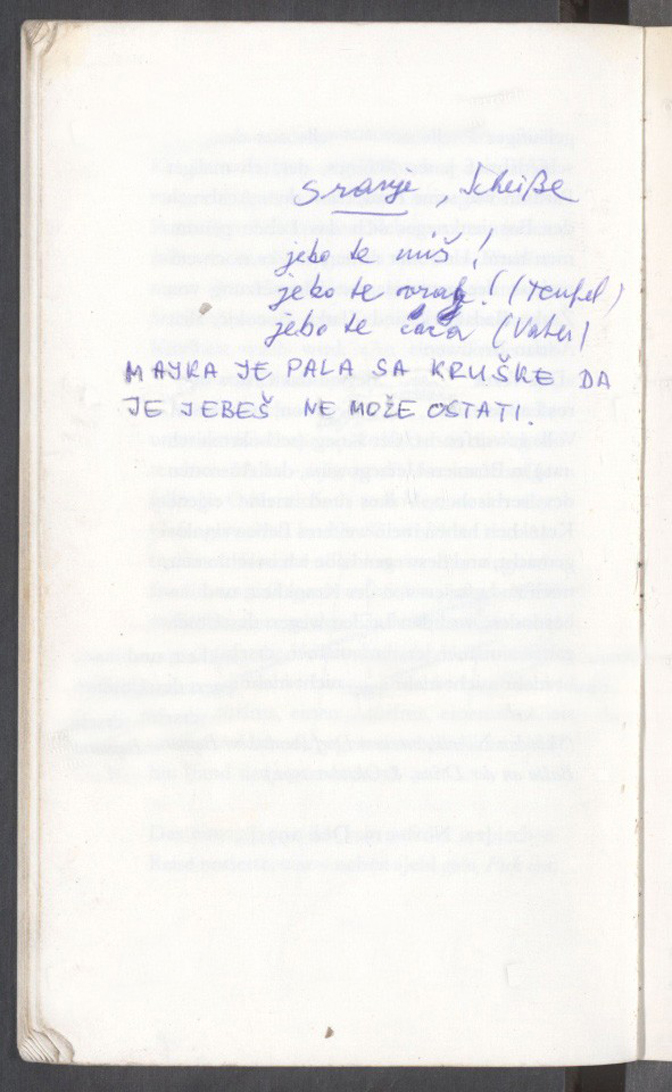 sranje, Scheiße
jebo te miš!
jebo te vrag! (Teufel)
jebo te ćaća (Vater)
MAJKA JE PALA SA KRUŠKE DA
JE JEBEŠ NE MOŽE OSTATI.